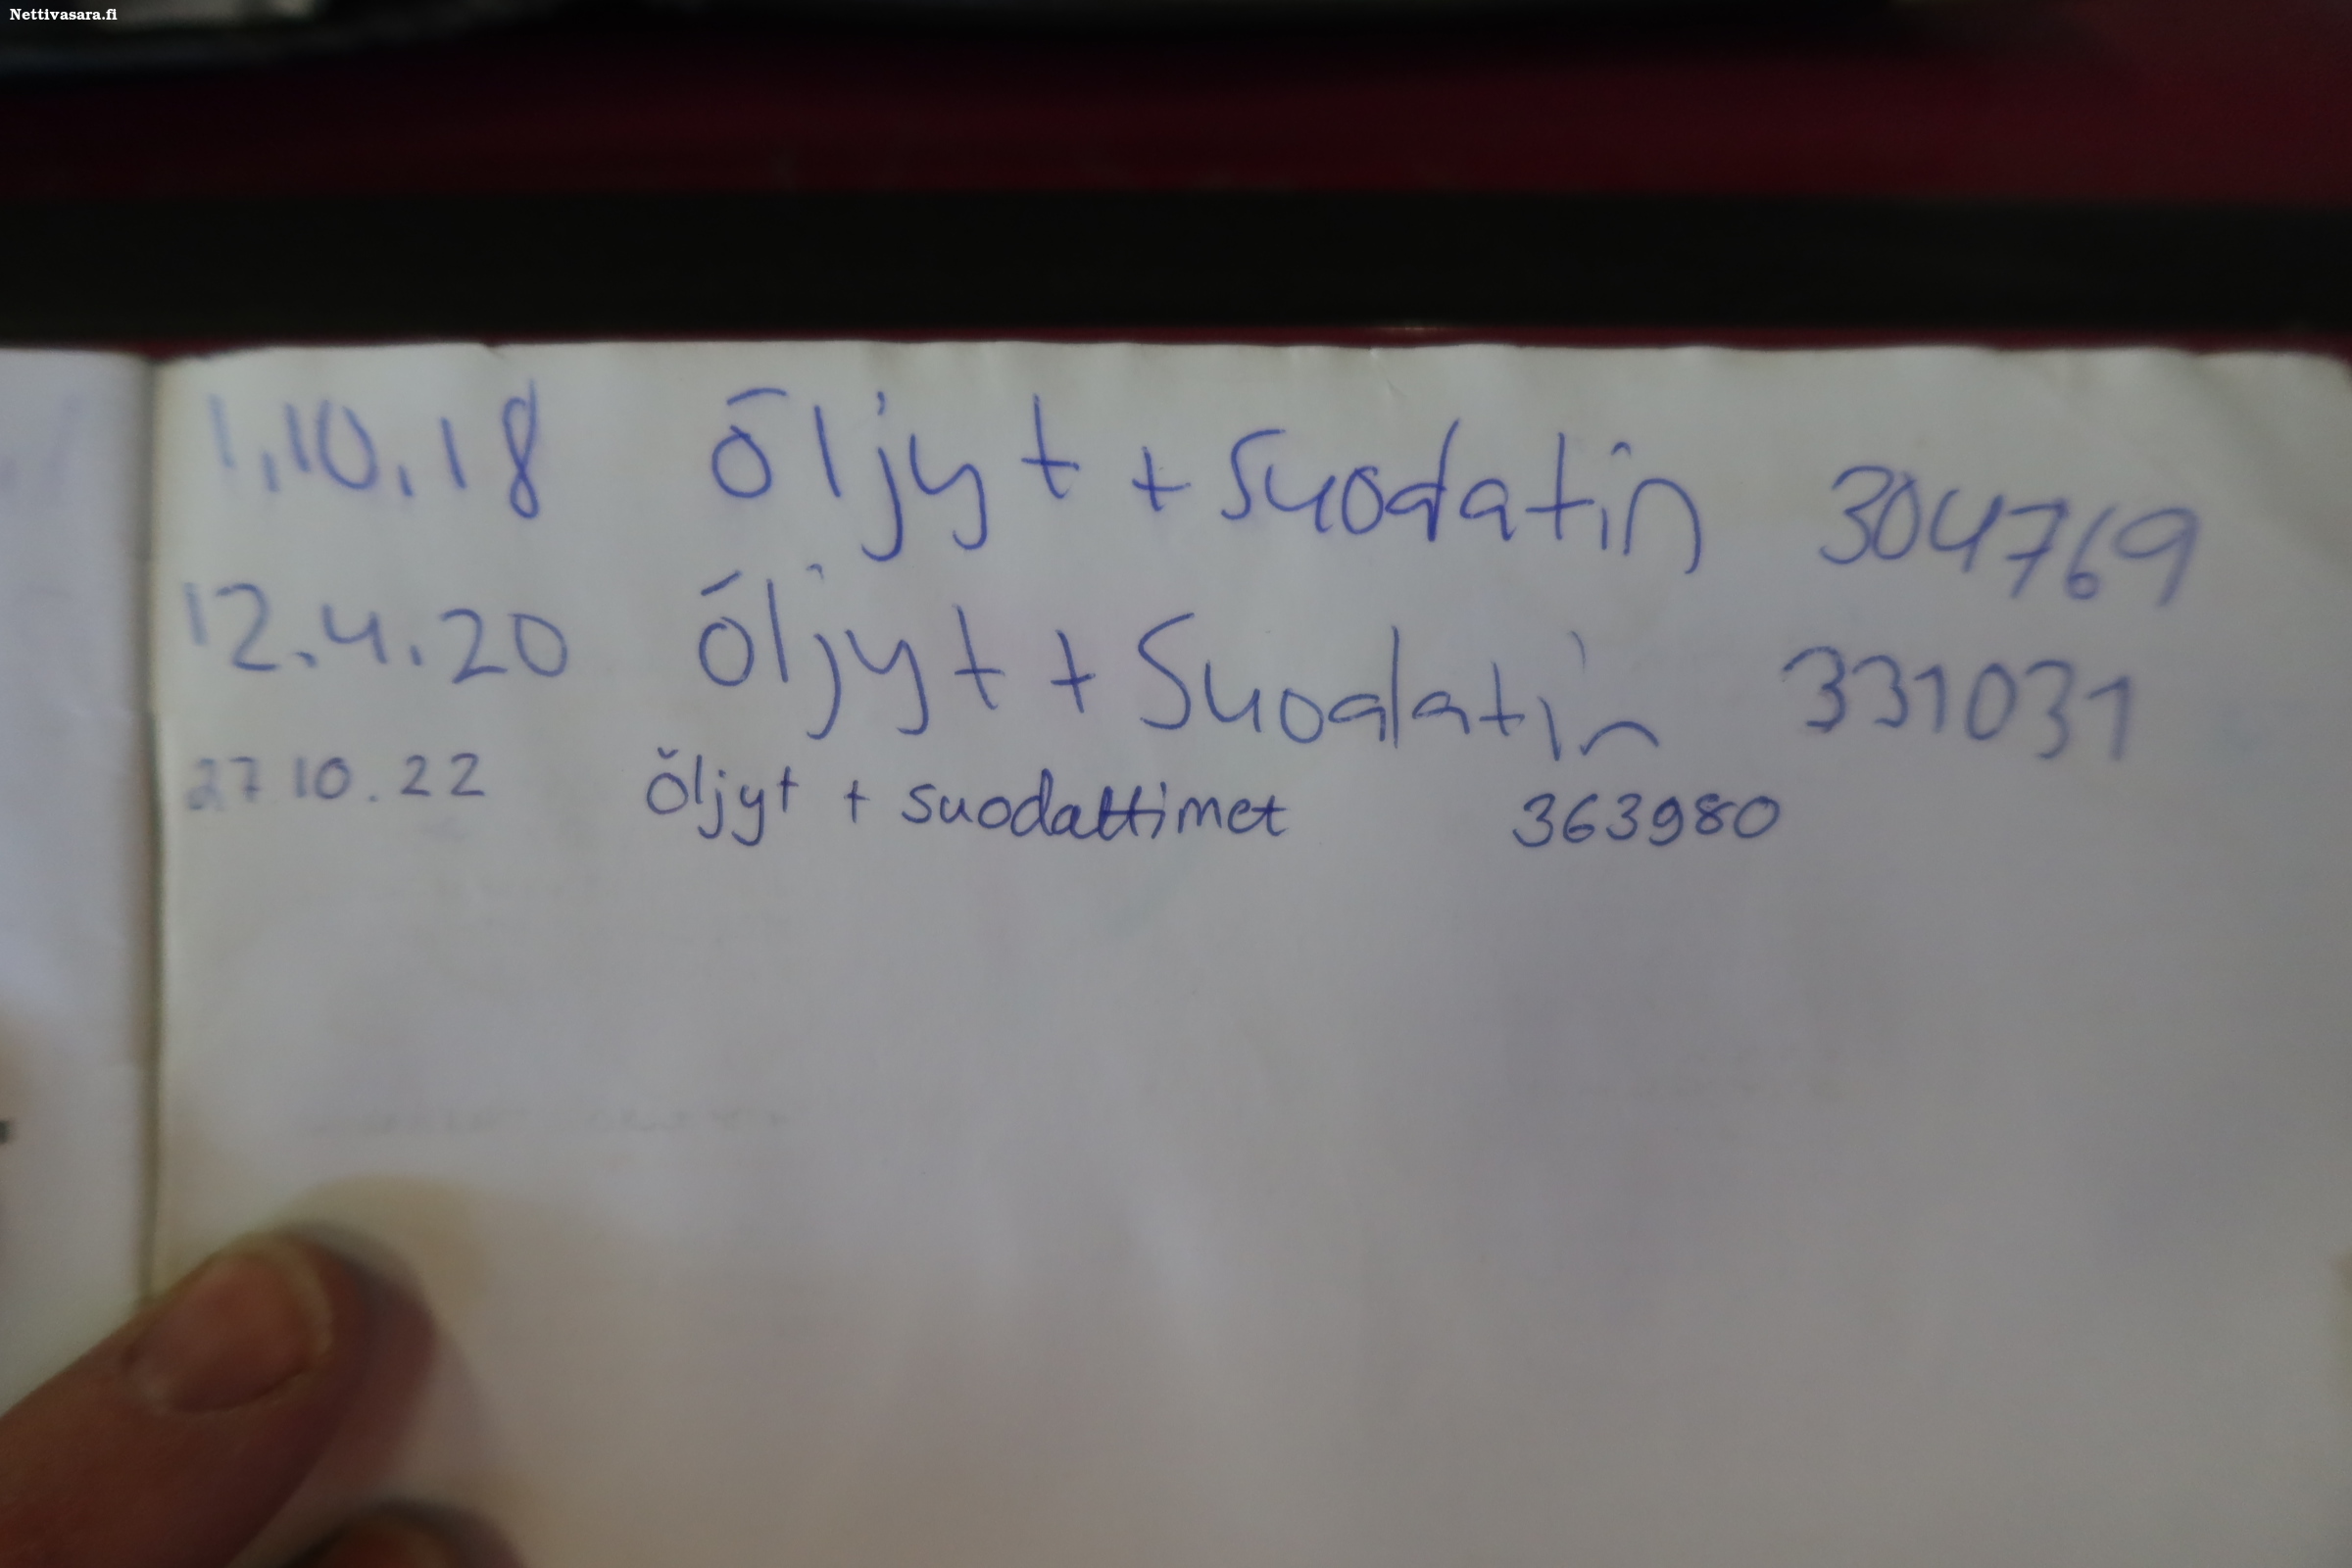 Nettivasara.fi
1.10.18 Öljyt + suodatin 304769
12.4.20 Öljyt + Suodatin 331031
27 10.22 Öljyt + suodattimet 363980